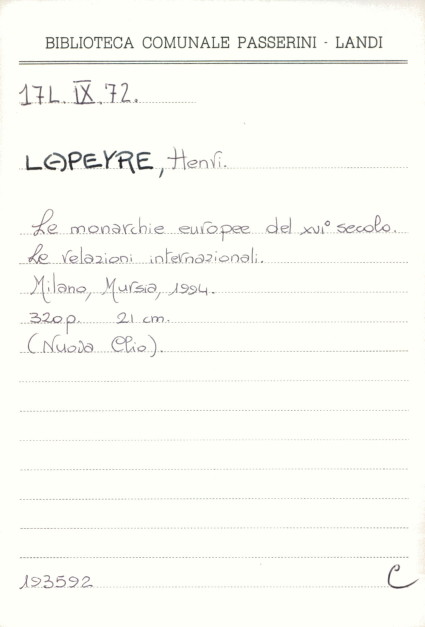 BIBLIOTECA COMUNALE PASSERINI - LANDI
17L. IX. 72.
LAPEYRE, Henri.
Le monarchie europee del XVI° secolo.
Le relazioni internazionali.
Milano, Mursia, 1994.
320 p. 21 cm.
(Nuova Clio).
193592 C